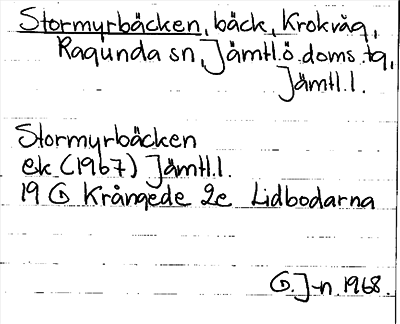 Stormyrbäcken, bäck, Krokvåg,
Ragunda sn, Jämtl.ö. doms. tg,
Jämtl.l.
Stormyrbäcken
ek (1967) Jämtl.l.
19 G Krångede 2e Lidbodarna
G. J-n 1968.